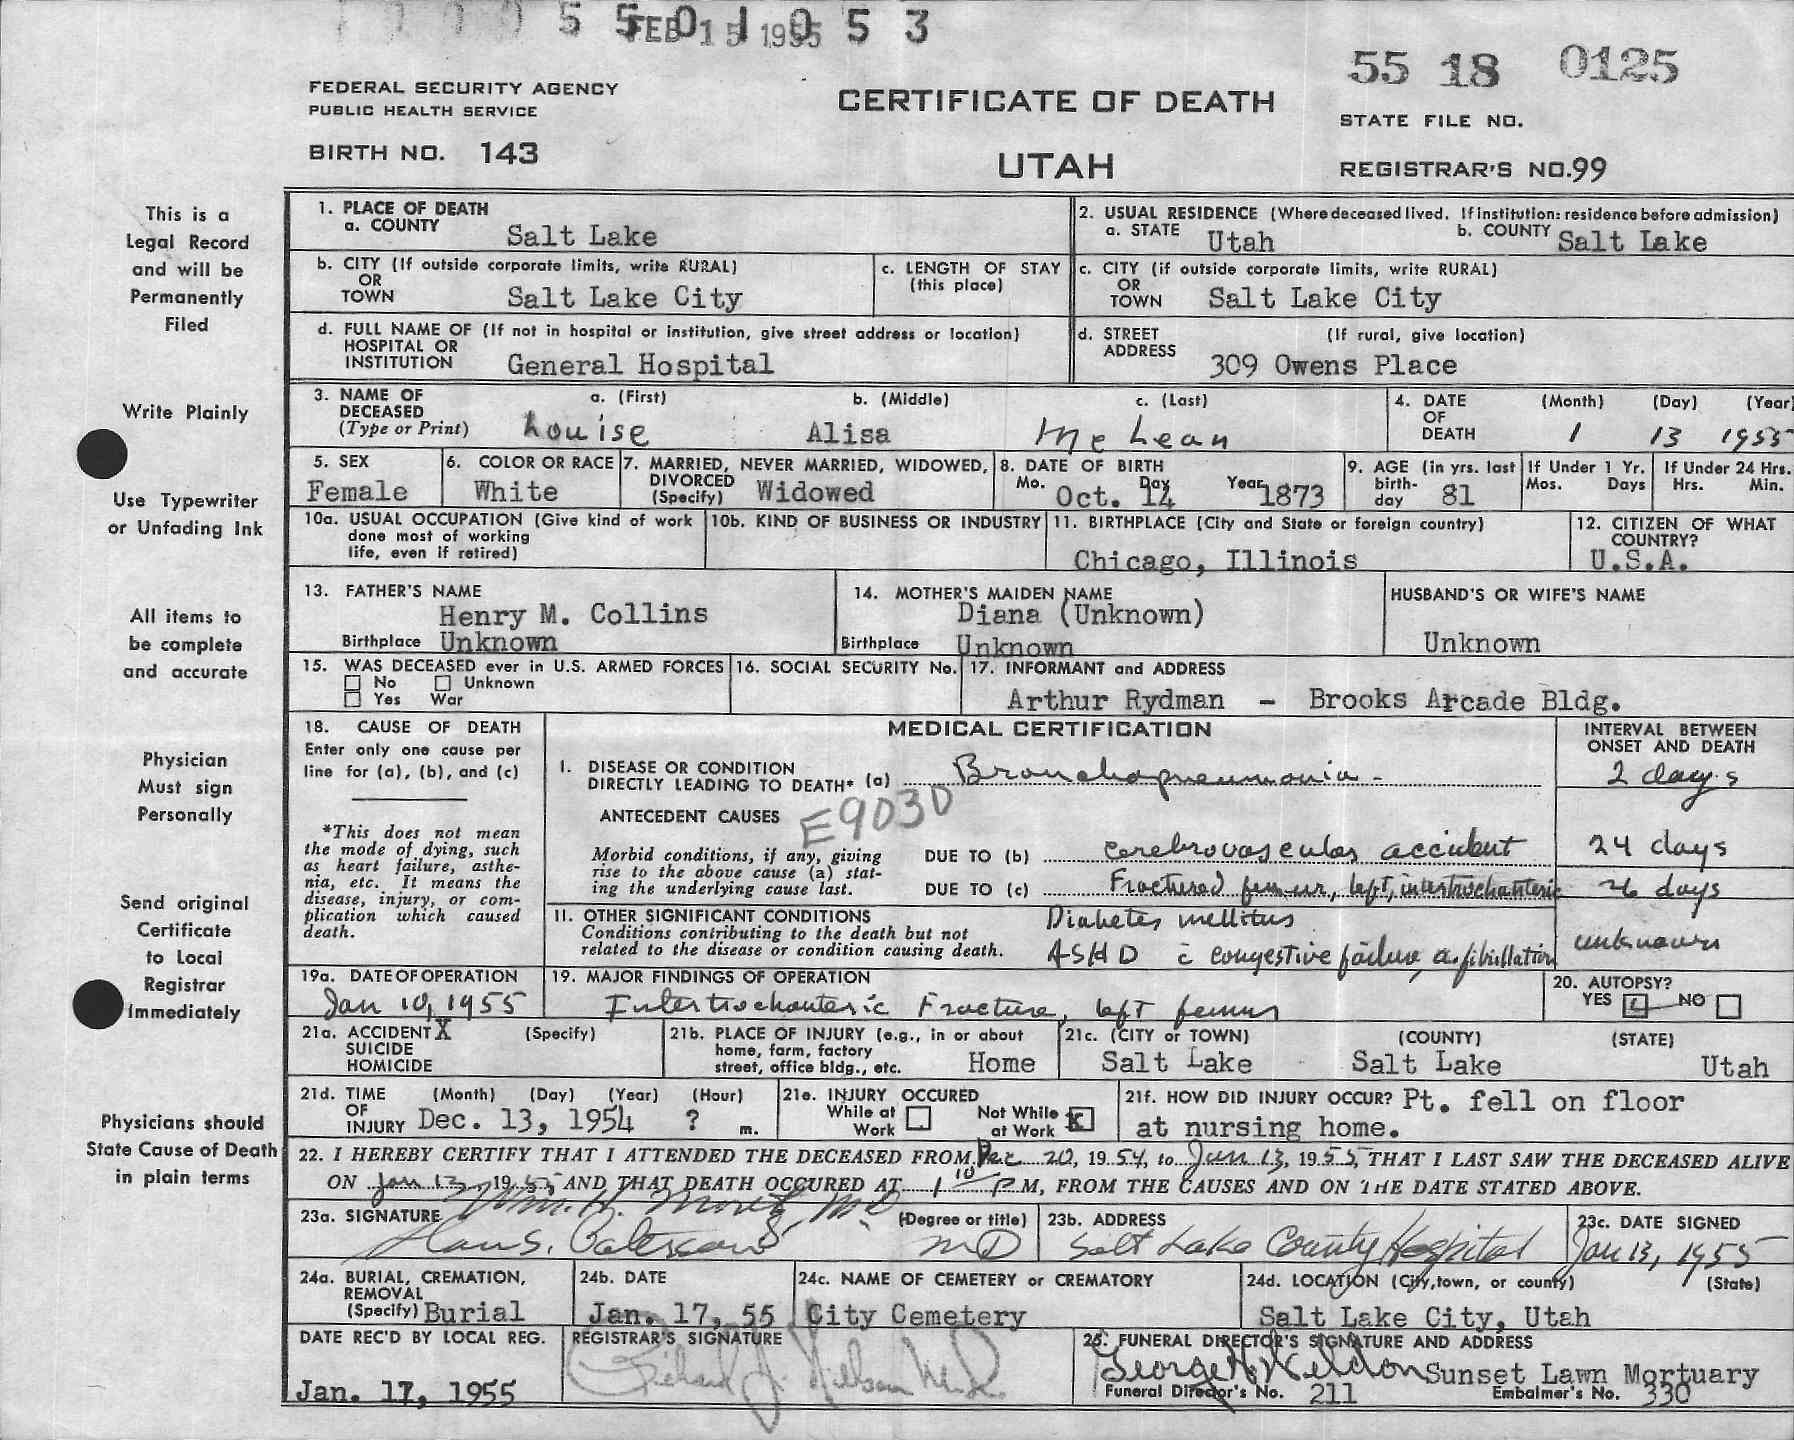 55 01 053
FEB 15 1955
55 18 0125
FEDERAL SECURITY AGENCY
PUBLIC HEALTH SERVICE
CERTIFICATE OF DEATH
STATE FILE NO.
BIRTH NO. 143
UTAH
REGISTRAR'S NO. 99
This is a
Legal Record
and will be
Permanently
Filed
Write Plainly
Use Typewriter
or Unfading Ink
All items to
be complete
and accurate
Physician
Must sign
Personally
Send original
Certificate
to Local
Registrar
Immediately
Physicians should
State Cause of Death
in plain terms
1. PLACE OF DEATH
a. COUNTY Salt Lake
2. USUAL RESIDENCE (Where deceased lived. If institution: residence before admission)
a. STATE Utah b. COUNTY Salt Lake
b. CITY (If outside corporate limits, write RURAL)
OR
TOWN Salt Lake City
c. LENGTH OF STAY
(this place)
c. CITY (if outside corporate limits, write RURAL)
OR
TOWN Salt Lake City
d. FULL NAME OF (If not in hospital or institution, give street address or location)
HOSPITAL OR
INSTITUTION General Hospital
d. STREET (If rural, give location)
ADDRESS 309 Owens Place
3. NAME OF DECEASED (Type or Print)
a. (First) b. (Middle) c. (Last)
Louise Alisa McLean
4. DATE OF DEATH (Month) (Day) (Year)
1 13 1955
5. SEX
Female
6. COLOR OR RACE
White
7. MARRIED, NEVER MARRIED, WIDOWED,
DIVORCED
(Specify) Widowed
8. DATE OF BIRTH
Mo. Day Year
Oct. 14 1873
9. AGE (in yrs. last
birth-
day 81
If Under 1 Yr.
Mos. Days
If Under 24 Hrs.
Hrs. Min.
10a. USUAL OCCUPATION (Give kind of work
done most of working
life, even if retired)
10b. KIND OF BUSINESS OR INDUSTRY
11. BIRTHPLACE (City and State or foreign country)
Chicago, Illinois
12. CITIZEN OF WHAT
COUNTRY?
U.S.A.
13. FATHER'S NAME
Henry M. Collins
Birthplace Unknown
14. MOTHER'S MAIDEN NAME
Diana (Unknown)
Birthplace Unknown
HUSBAND'S OR WIFE'S NAME
Unknown
15. WAS DECEASED ever in U.S. ARMED FORCES
No Unknown
Yes War
16. SOCIAL SECURITY No.
17. INFORMANT and ADDRESS
Arthur Rydman - Brooks Arcade Bldg.
18. CAUSE OF DEATH
Enter only one cause per
line for (a), (b), and (c)
*This does not mean
the mode of dying, such
as heart failure, asthe-
nia, etc. It means the
disease, injury, or com-
plication which caused
death.
MEDICAL CERTIFICATION
INTERVAL BETWEEN
ONSET AND DEATH
I. DISEASE OR CONDITION
DIRECTLY LEADING TO DEATH* (a) Bronchopneumonia - 2 days
ANTECEDENT CAUSES
E9030
Morbid conditions, if any, giving
rise to the above cause (a) stat-
ing the underlying cause last.
DUE TO (b) cerebrovascular accident 24 days
DUE TO (c) Fractured femur, left, intertrochanteric 26 days
II. OTHER SIGNIFICANT CONDITIONS
Conditions contributing to the death but not
related to the disease or condition causing death.
Diabetes mellitus
ASHD c̄ congestive failure, a. fibrillation unknown
19a. DATE OF OPERATION
Jan 10, 1955
19. MAJOR FINDINGS OF OPERATION
Intertrochanteric Fracture, left femur
20. AUTOPSY?
YES NO
21a. ACCIDENT X (Specify)
SUICIDE
HOMICIDE
21b. PLACE OF INJURY (e.g., in or about
home, farm, factory
street, office bldg., etc. Home
21c. (CITY or TOWN) (COUNTY) (STATE)
Salt Lake Salt Lake Utah
21d. TIME (Month) (Day) (Year) (Hour)
OF
INJURY Dec. 13, 1954 ? m.
21e. INJURY OCCURED
While at Work Not While at Work X
21f. HOW DID INJURY OCCUR? Pt. fell on floor
at nursing home.
22. I HEREBY CERTIFY THAT I ATTENDED THE DECEASED FROM Dec 20, 1954, to Jan 13, 1955, THAT I LAST SAW THE DECEASED ALIVE
ON Jan 13, 1955 AND THAT DEATH OCCURED AT 1 10 P M, FROM THE CAUSES AND ON THE DATE STATED ABOVE.
Wm. H. Moretz, MD
23a. SIGNATURE (Degree or title)
MD
23b. ADDRESS
Salt Lake County Hospital
23c. DATE SIGNED
Jan 13, 1955
24a. BURIAL, CREMATION,
REMOVAL
(Specify) Burial
24b. DATE
Jan. 17, 55
24c. NAME OF CEMETERY or CREMATORY
City Cemetery
24d. LOCATION (City, town, or county) (State)
Salt Lake City, Utah
DATE REC'D BY LOCAL REG.
Jan. 17, 1955
REGISTRAR'S SIGNATURE
Richard J. Nielson M.D.
25. FUNERAL DIRECTOR'S SIGNATURE AND ADDRESS
George H. Weldon Sunset Lawn Mortuary
Funeral Director's No. 211 Embalmer's No. 330